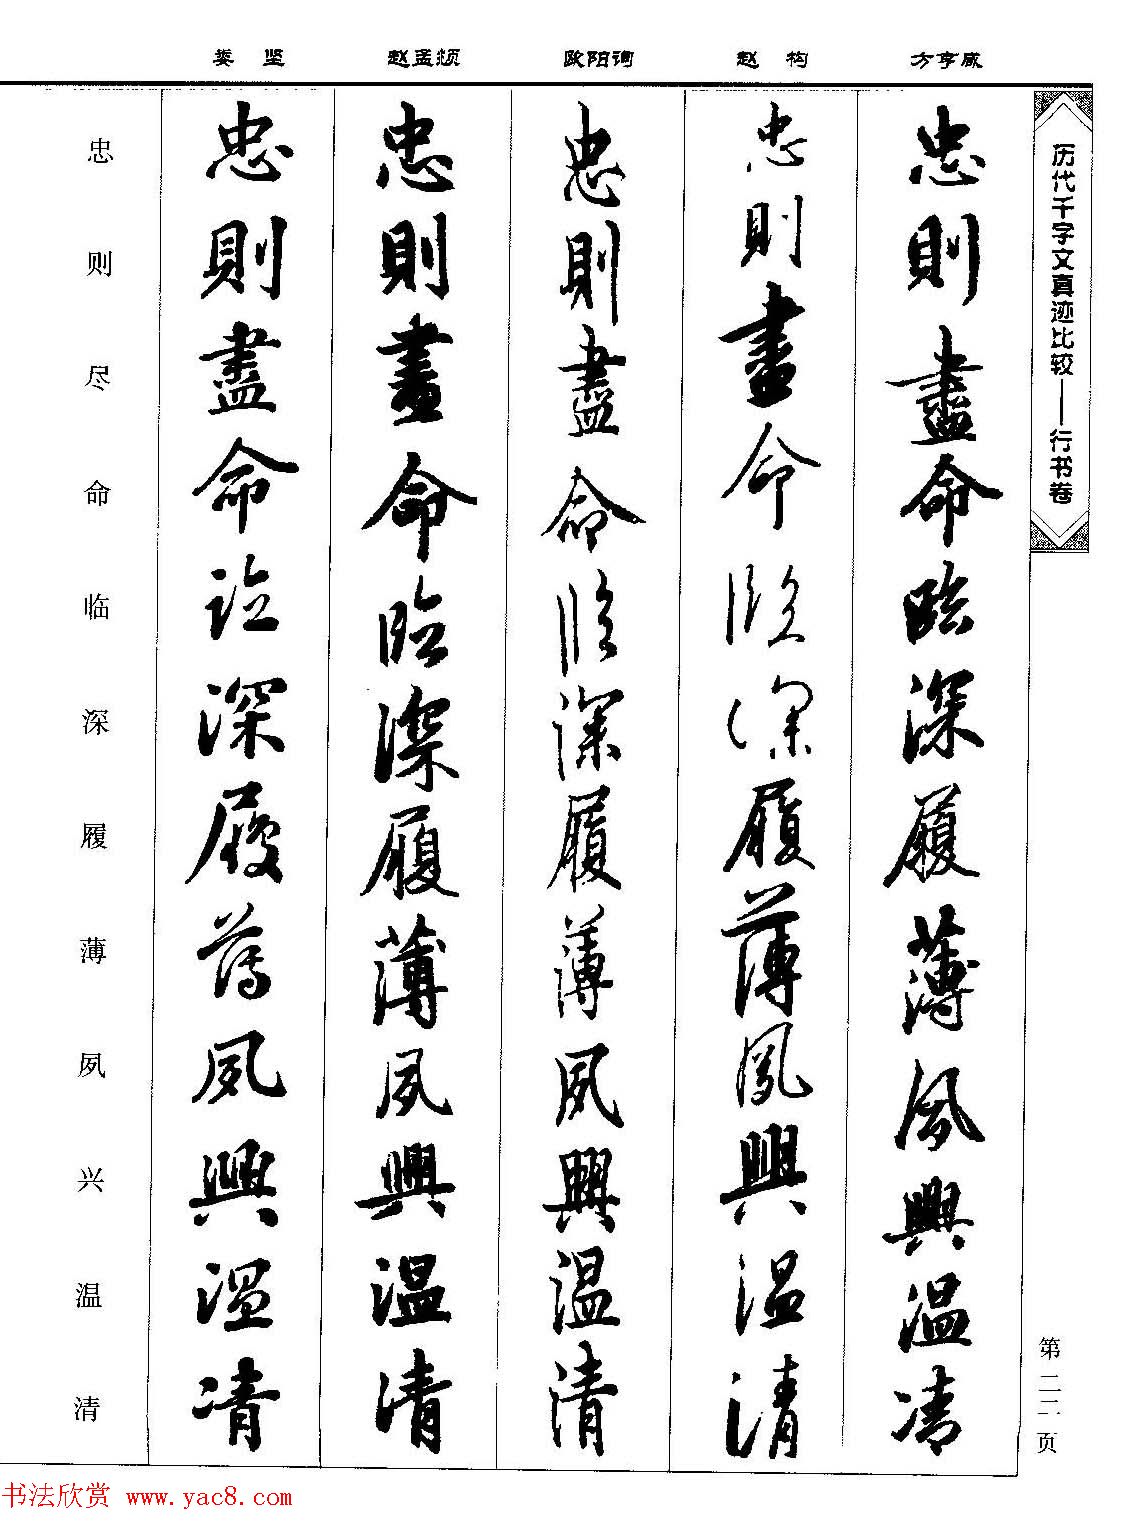 娄坚 赵孟頫 欧阳询 赵构 方亨咸
历代千字文真迹比较——行书卷
第二二页
忠則盡命臨深履薄夙興温凊
忠則盡命臨深履薄夙興温清
忠則盡命臨深履薄夙興温清
忠則盡命臨深履薄夙興温清
忠則盡命臨深履薄夙興温凊
忠则尽命临深履薄夙兴温清
书法欣赏 www.yac8.com